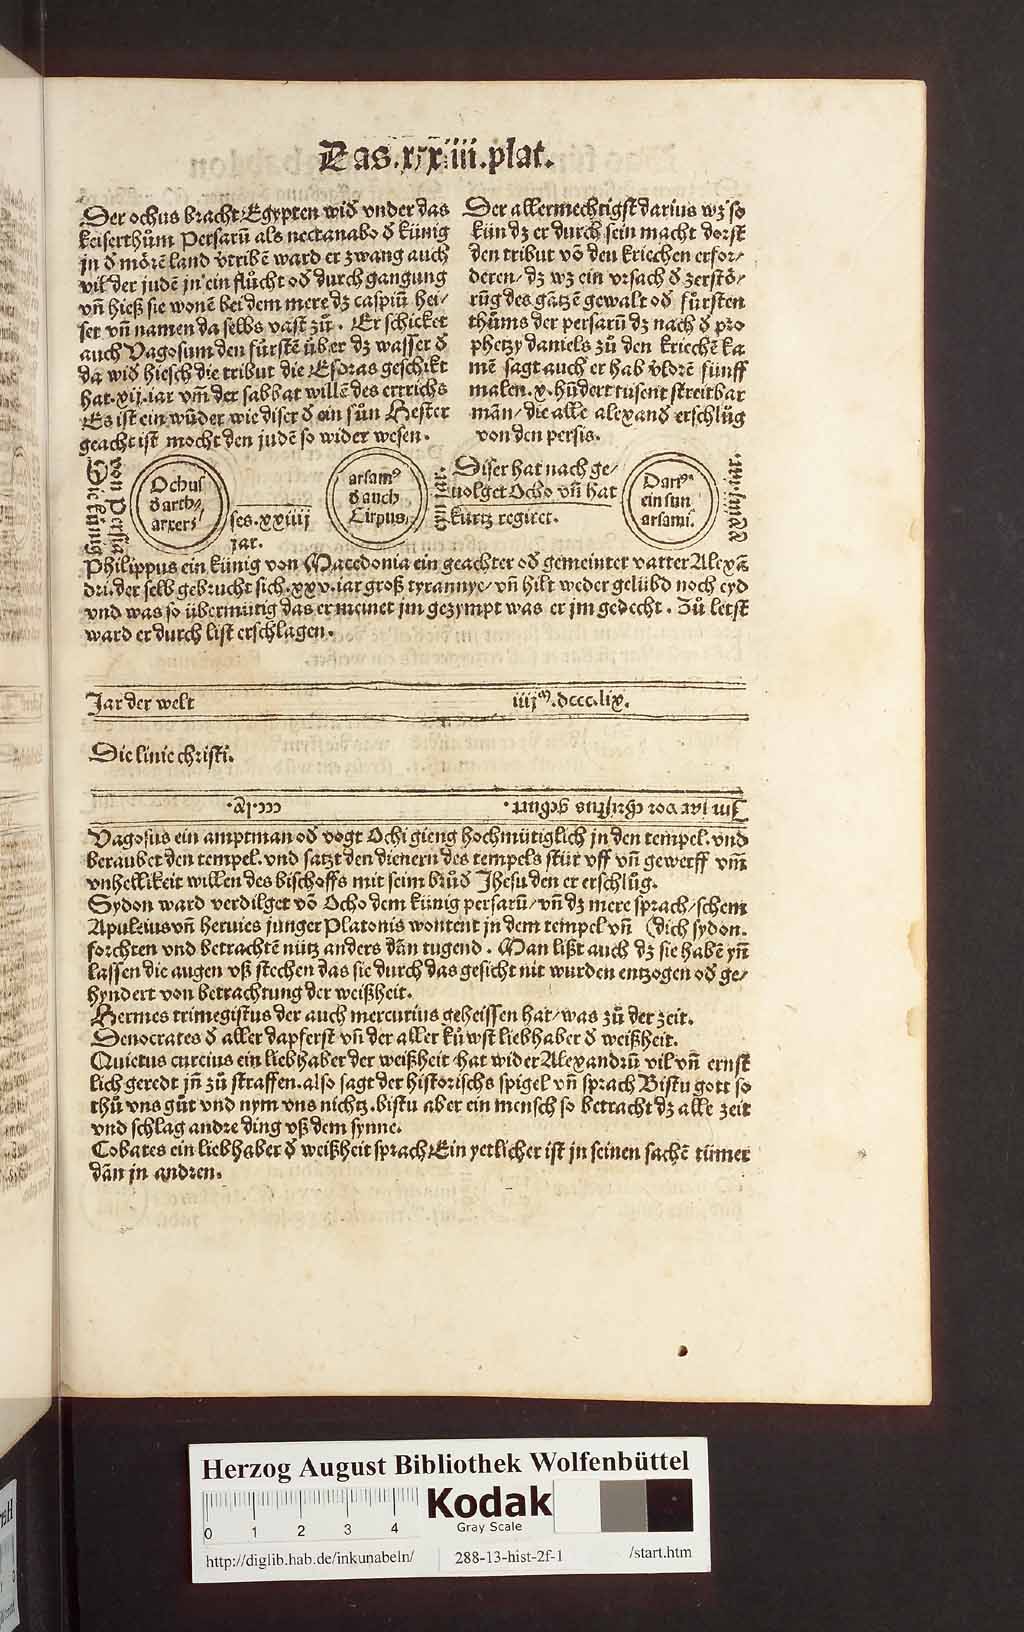 Das .xxxiiii. plat.
Der ochus bracht Egypten wid̄ vnder das
keiserthům Persarū als nectanabo d̄ künig
jn d̄ mörē land vtribē ward er zwang auch
vil der judē in ein flůcht od̄ durch gangung
vñ hieß sie wonē bei dem mere dz caspiū hei/
ser vñ namen da selbs vast zů. Er schicket
auch Vagosum den fürstē über dz wasser d̄
da wid̄ hiesch die tribut die Esdras geschikt
hat .vij. iar vm̄ der sabbat willē des ertrichs
Es ist ein wūder wie diser d̄ ein sůn Hester
geacht ist mocht den judē so wider wesen.
Der allermechtigst darius wz so
kün dz er durch sein macht dorst
den tribut vō den kriechen erfor/
deren/ dz wz ein vrsach d̄ zerstö/
rūg des gātzē gewalt od̄ fürsten
thůms der persarū dz nach d̄ pro
phetzy daniels zů den kriechē ka
mē sagt auch er hab vlorē fünff
malen .x. hūdert tusent streitbar
män/ die alle alexand̄ erschlůg
von den persis.
Die künig
von Persia
Ochus
d̄ arth/
arxers
ses .xxiiij
jar.
arsam⁹
d̄ auch
Cirpus
Diser hat nach ge/
uolget Ocho vñ hat
kurtz regiret.
Dari⁹
ein sun
arsami.
Philippus ein künig von Macedonia ein geachter od̄ gemeinter vatter Alexā
dri. der selb gebrucht sich .xxv. iar groß tyrannye/ vñ hilt weder gelübd noch eyd
vnd was so übermütig das er meinet jm gezympt was er jm gedecht. Zů letst
ward er durch list erschlagen.
Jar der welt iiijᵐ.dccc.lix.
Die linie christi.
Im iar vor christus geburt. ccc.lx.
Vagosus ein amptman od̄ vogt Ochi gieng hochmütiglich jn den tempel. vnd
beraubet den tempel. vnd satzt den dienern des tempels stür vff vñ gewerff vm̄
vnhellikeit willen des bischoffs mit seim brůd̄ Jhesu den er erschlůg.
Sydon ward verdilget vō Ocho dem künig persarū/ vñ dz mere sprach/ schem
Apuleius vñ hermes junger Platonis wontent jn dem tempel vñ (dich sydon.
forchten vnd betrachtē nütz anders dān tugend. Man lißt auch dz sie habē yn̄
lassen die augen vß stechen das sie durch das gesicht nit wurden entzogen od̄ ge/
hyndert von betrachtung der weißheit.
Hermes trimegistus der auch mercurius geheissen hat/ was zů der zeit.
Senocrates d̄ aller dapferst vñ der aller kůwst liebhaber d̄ weißheit.
Quietus curcius ein liebhaber der weißheit hat wider Alexandrū vil vñ ernst
lich geredt jn̄ zů straffen. also sagt der historischs spigel vñ sprach Bistu gott so
thů vns gůt vnd nym vns nichtz. bistu aber ein mensch so betracht dz alle zeit
vnd schlag andre ding vß dem synne.
Cobates ein liebhaber d̄ weißheit sprach Ein yetlicher ist jn seinen sachē tümer
dān jn andren.
Herzog August Bibliothek Wolfenbüttel
0 1 2 3 4
Kodak
Gray Scale
http://diglib.hab.de/inkunabeln/ 288-13-hist-2f-1 /start.htm